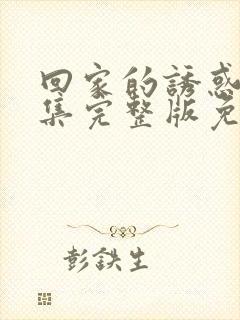 回家的誘惑
集完整版免
彭鉄生